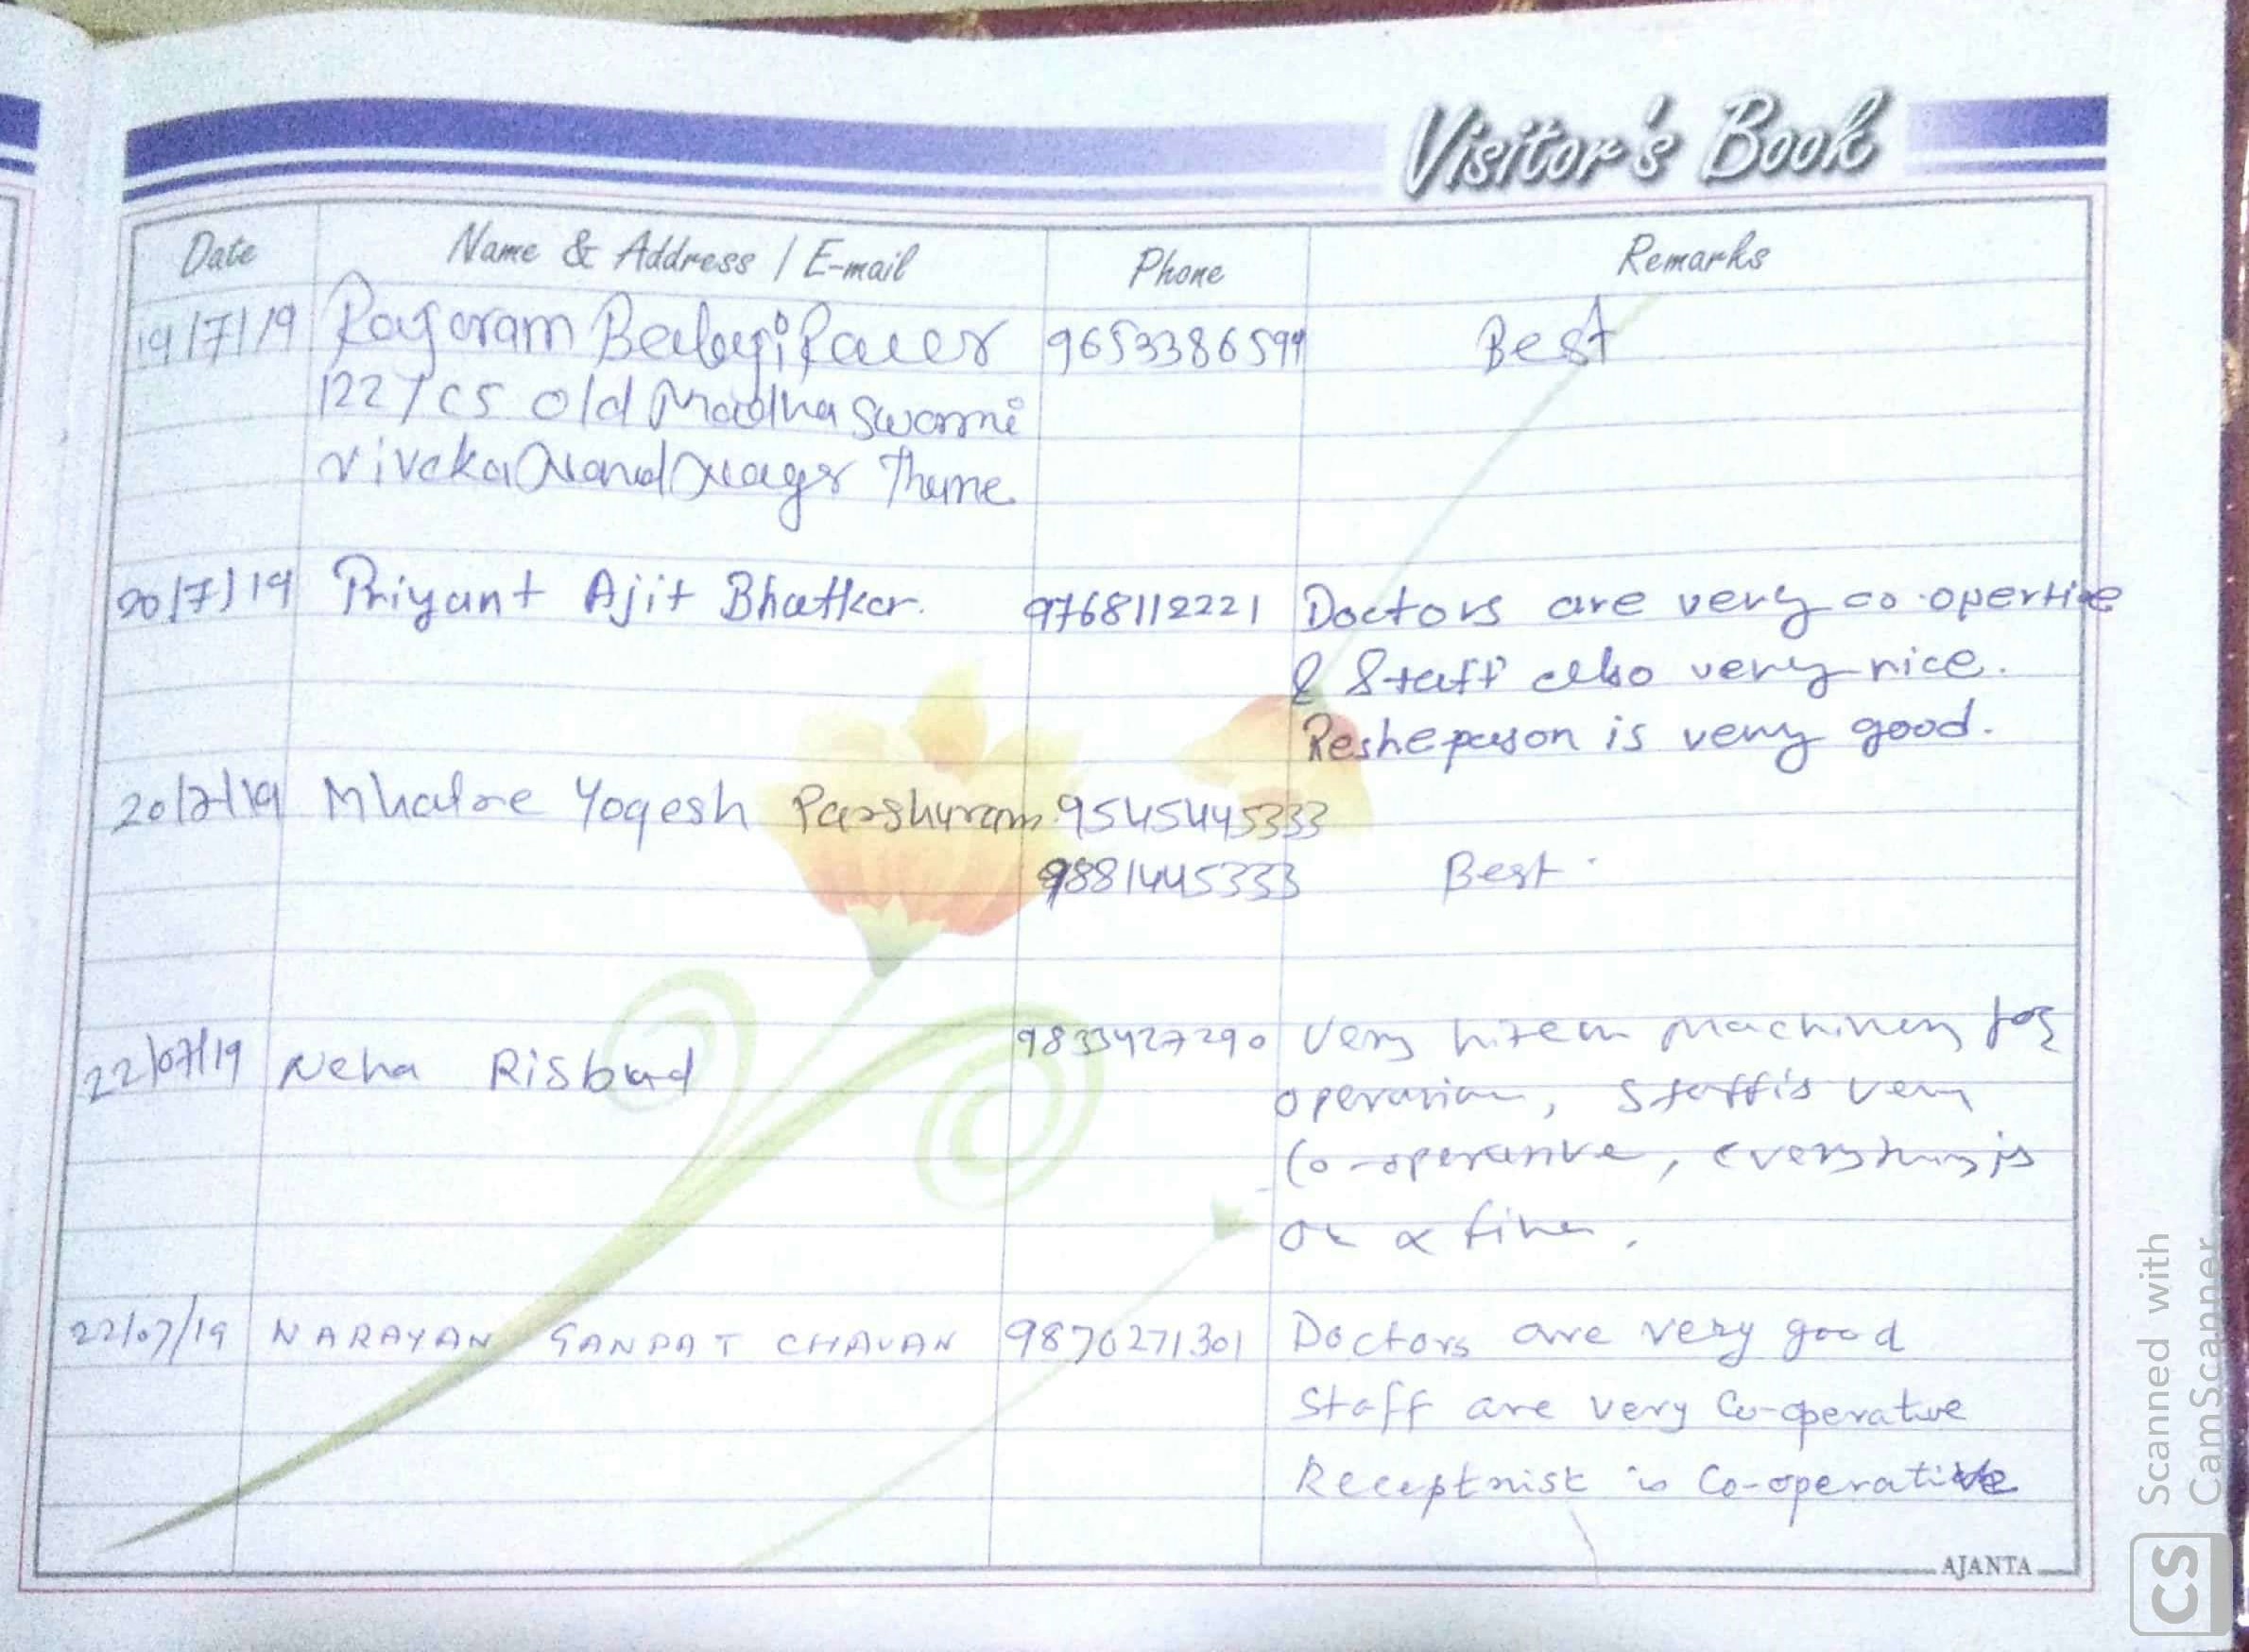 Visitor's Book
Date Name & Address / E-mail Phone Remarks
19/7/19 Rajaram 9653386594 Best
1227 CS old Madha Swami
Vivekanand Nagar Thane
20/7/19 Priyant Ajit Bhatkar. 9768112221 Doctors are very co-opertive
& Staff also very nice.
Reshepason is very good.
20/7/19 Mhatre Yogesh Parshuram 9545445333
9881445333 Best.
22/07/19 Neha Risbud 9833427290 Very hitech machinery for
operation, Staff is very
co-operative, everything is
ok & fine.
22/07/19 NARAYAN GANPAT CHAVAN 9870271301 Doctors are very good
Staff are very Co-operative
Receptnist is Co-operative
AJANTA
Scanned with
CamScanner
CS